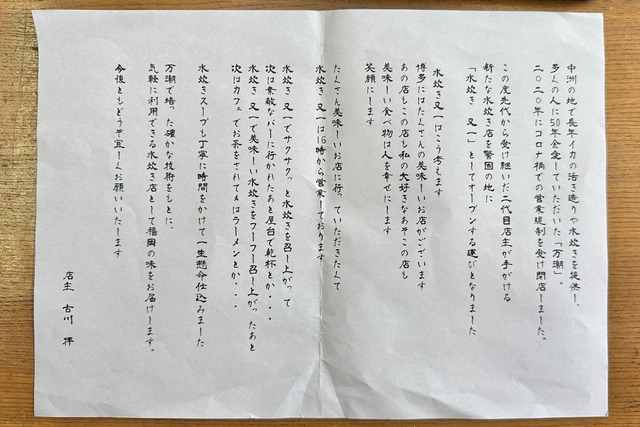 中洲の地で長年イカの活き造りや水炊きを提供し、
多くの人に50年余愛していただいた「万潮」。
二〇二〇年にコロナ禍での営業規制を受け閉店しました。
この度先代から受け継いだ二代目店主が手がける
新たな水炊き店を警固の地に
「水炊き 又一」としてオープンする運びとなりました
水炊き又一はこう考えます
博多にはたくさんの美味しいお店がございます
あの店もこの店も私の大好きなあそこの店も
美味しい食べ物は人を幸せにします
笑顔にします
たくさん美味しいお店に行っていただきたくて
水炊き 又一は16時から営業しております
水炊き 又一でサクサクっと水炊きを召し上がって
次は素敵なバーに行かれたあと屋台で乾杯とか・・・
水炊き 又一で美味しい水炊きをフーフー召し上がったあと
次はカフェでお茶をされて〆はラーメンとか・・・
水炊きスープも丁寧に時間をかけて一生懸命仕込みました
万潮で培った確かな技術をもとに、
気軽に利用できる水炊き店として福岡の味をお届けします。
今後ともどうぞ宜しくお願いいたします
店主 古川 拝